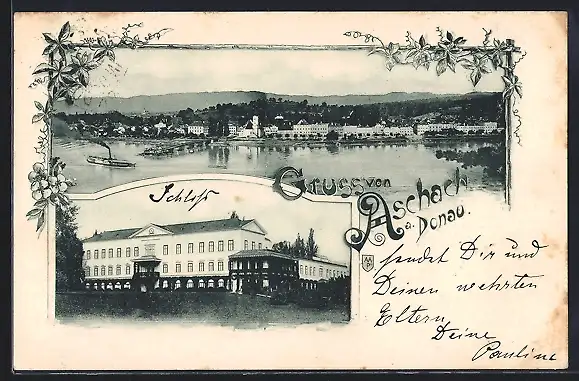 Gruss von
Aschach
a. Donau.
Schloß
sendet Dir und
Deinen werten
Eltern
Deine
Pauline